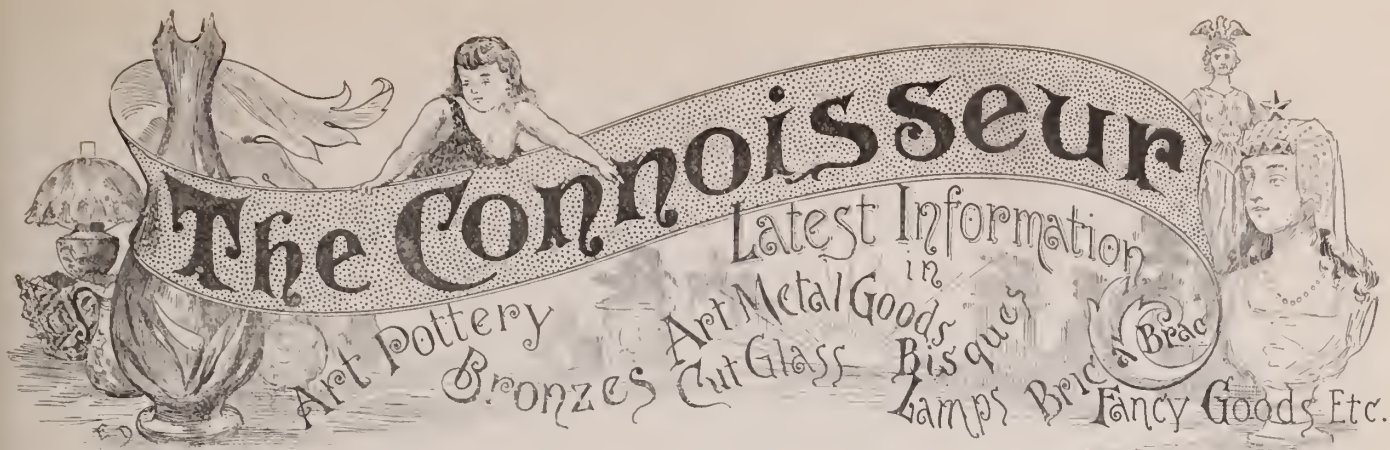 The Connoisseur
Latest Information
in
Art Pottery
Bronzes
Art Metal Goods
Cut Glass
Bisque
Lamps
Bric A Brac
Fancy Goods Etc.
ED